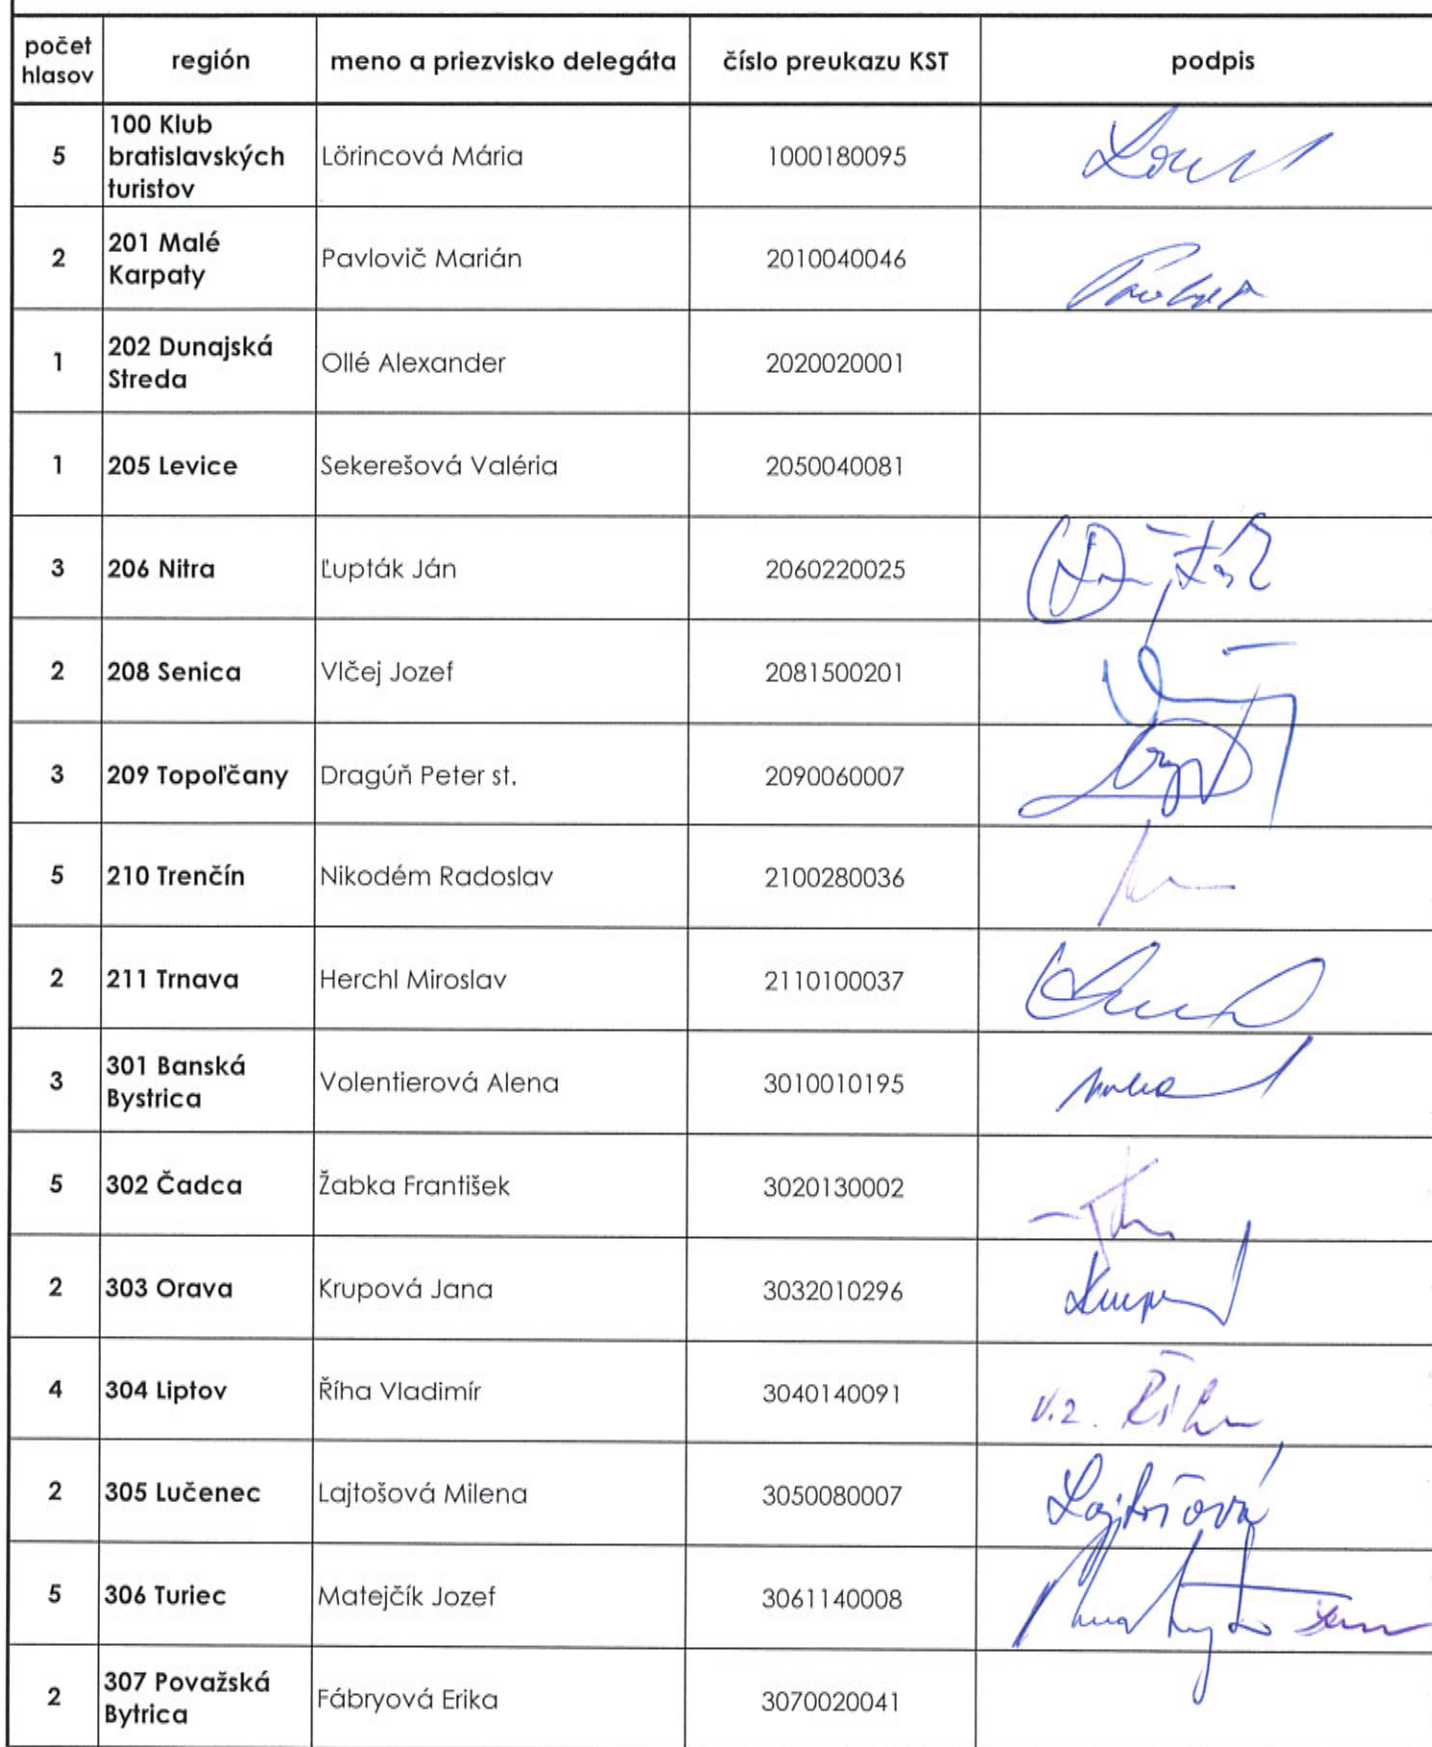 počet hlasov región meno a priezvisko delegáta číslo preukazu KST podpis
5 100 Klub bratislavských turistov Lörincová Mária 1000180095
2 201 Malé Karpaty Pavlovič Marián 2010040046
1 202 Dunajská Streda Ollé Alexander 2020020001
1 205 Levice Sekerešová Valéria 2050040081
3 206 Nitra Ľupták Ján 2060220025
2 208 Senica Vlčej Jozef 2081500201
3 209 Topoľčany Dragúň Peter st. 2090060007
5 210 Trenčín Nikodém Radoslav 2100280036
2 211 Trnava Herchl Miroslav 2110100037
3 301 Banská Bystrica Volentierová Alena 3010010195
5 302 Čadca Žabka František 3020130002
2 303 Orava Krupová Jana 3032010296
4 304 Liptov Říha Vladimír 3040140091 v.z. Říha
2 305 Lučenec Lajtošová Milena 3050080007 Lajtošová
5 306 Turiec Matejčík Jozef 3061140008
2 307 Považská Bytrica Fábryová Erika 3070020041